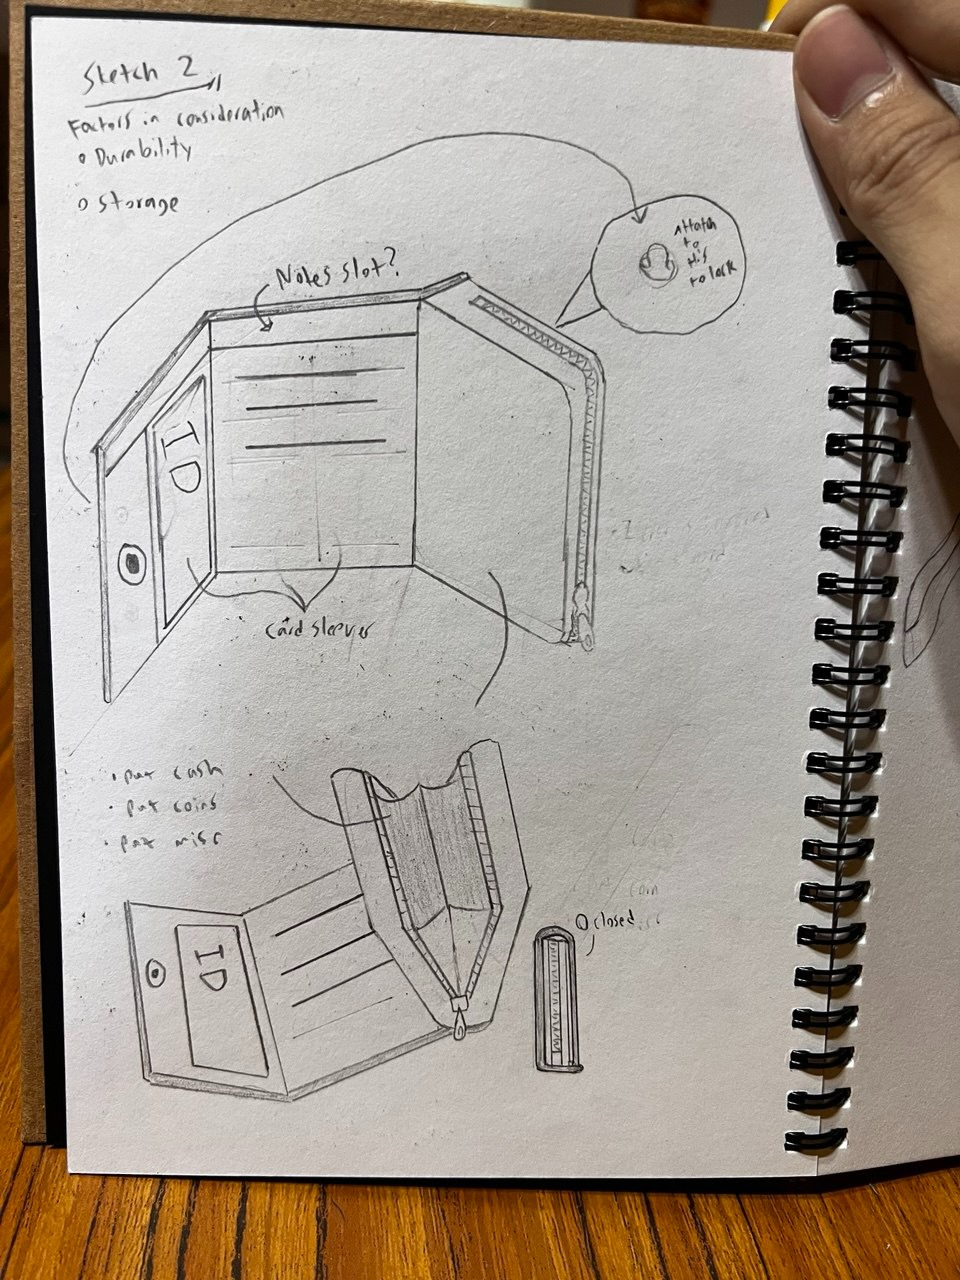 Sketch 2
Factors in consideration
Durability
Storage
Notes slot?
Attach
to
this
to lock
ID
card sleeves
put cash
put coins
put misc
coin
closed
ID